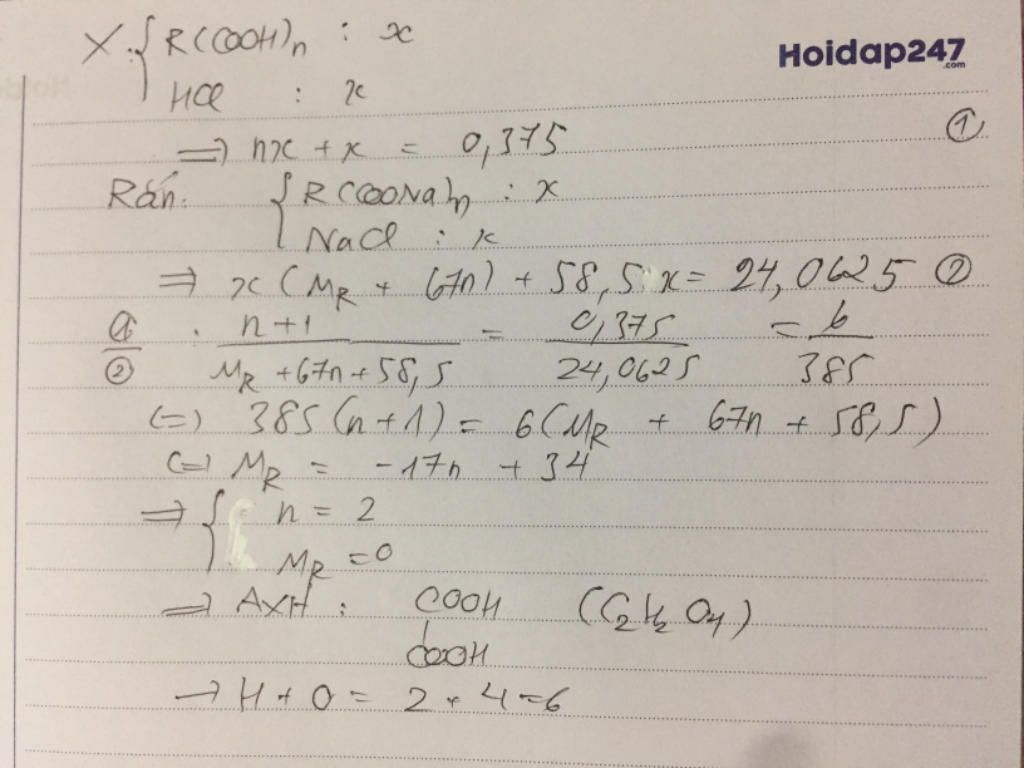 X: { R(COOH)n : x
Hoidap247
.com
HCl : x
=> nx + x = 0,375 ①
Rắn: { R(COONa)n : x
NaCl : x
=> x(MR + 67n) + 58,5 x = 24,0625 ②
①/② : (n+1)/(MR + 67n + 58,5) = 0,375/24,0625 = 6/385
(=) 385(n+1) = 6(MR + 67n + 58,5)
(=) MR = -17n + 34
=> { n = 2
MR = 0
=> AXH : COOH (C2H2O4)
COOH
-> H + O = 2 + 4 = 6